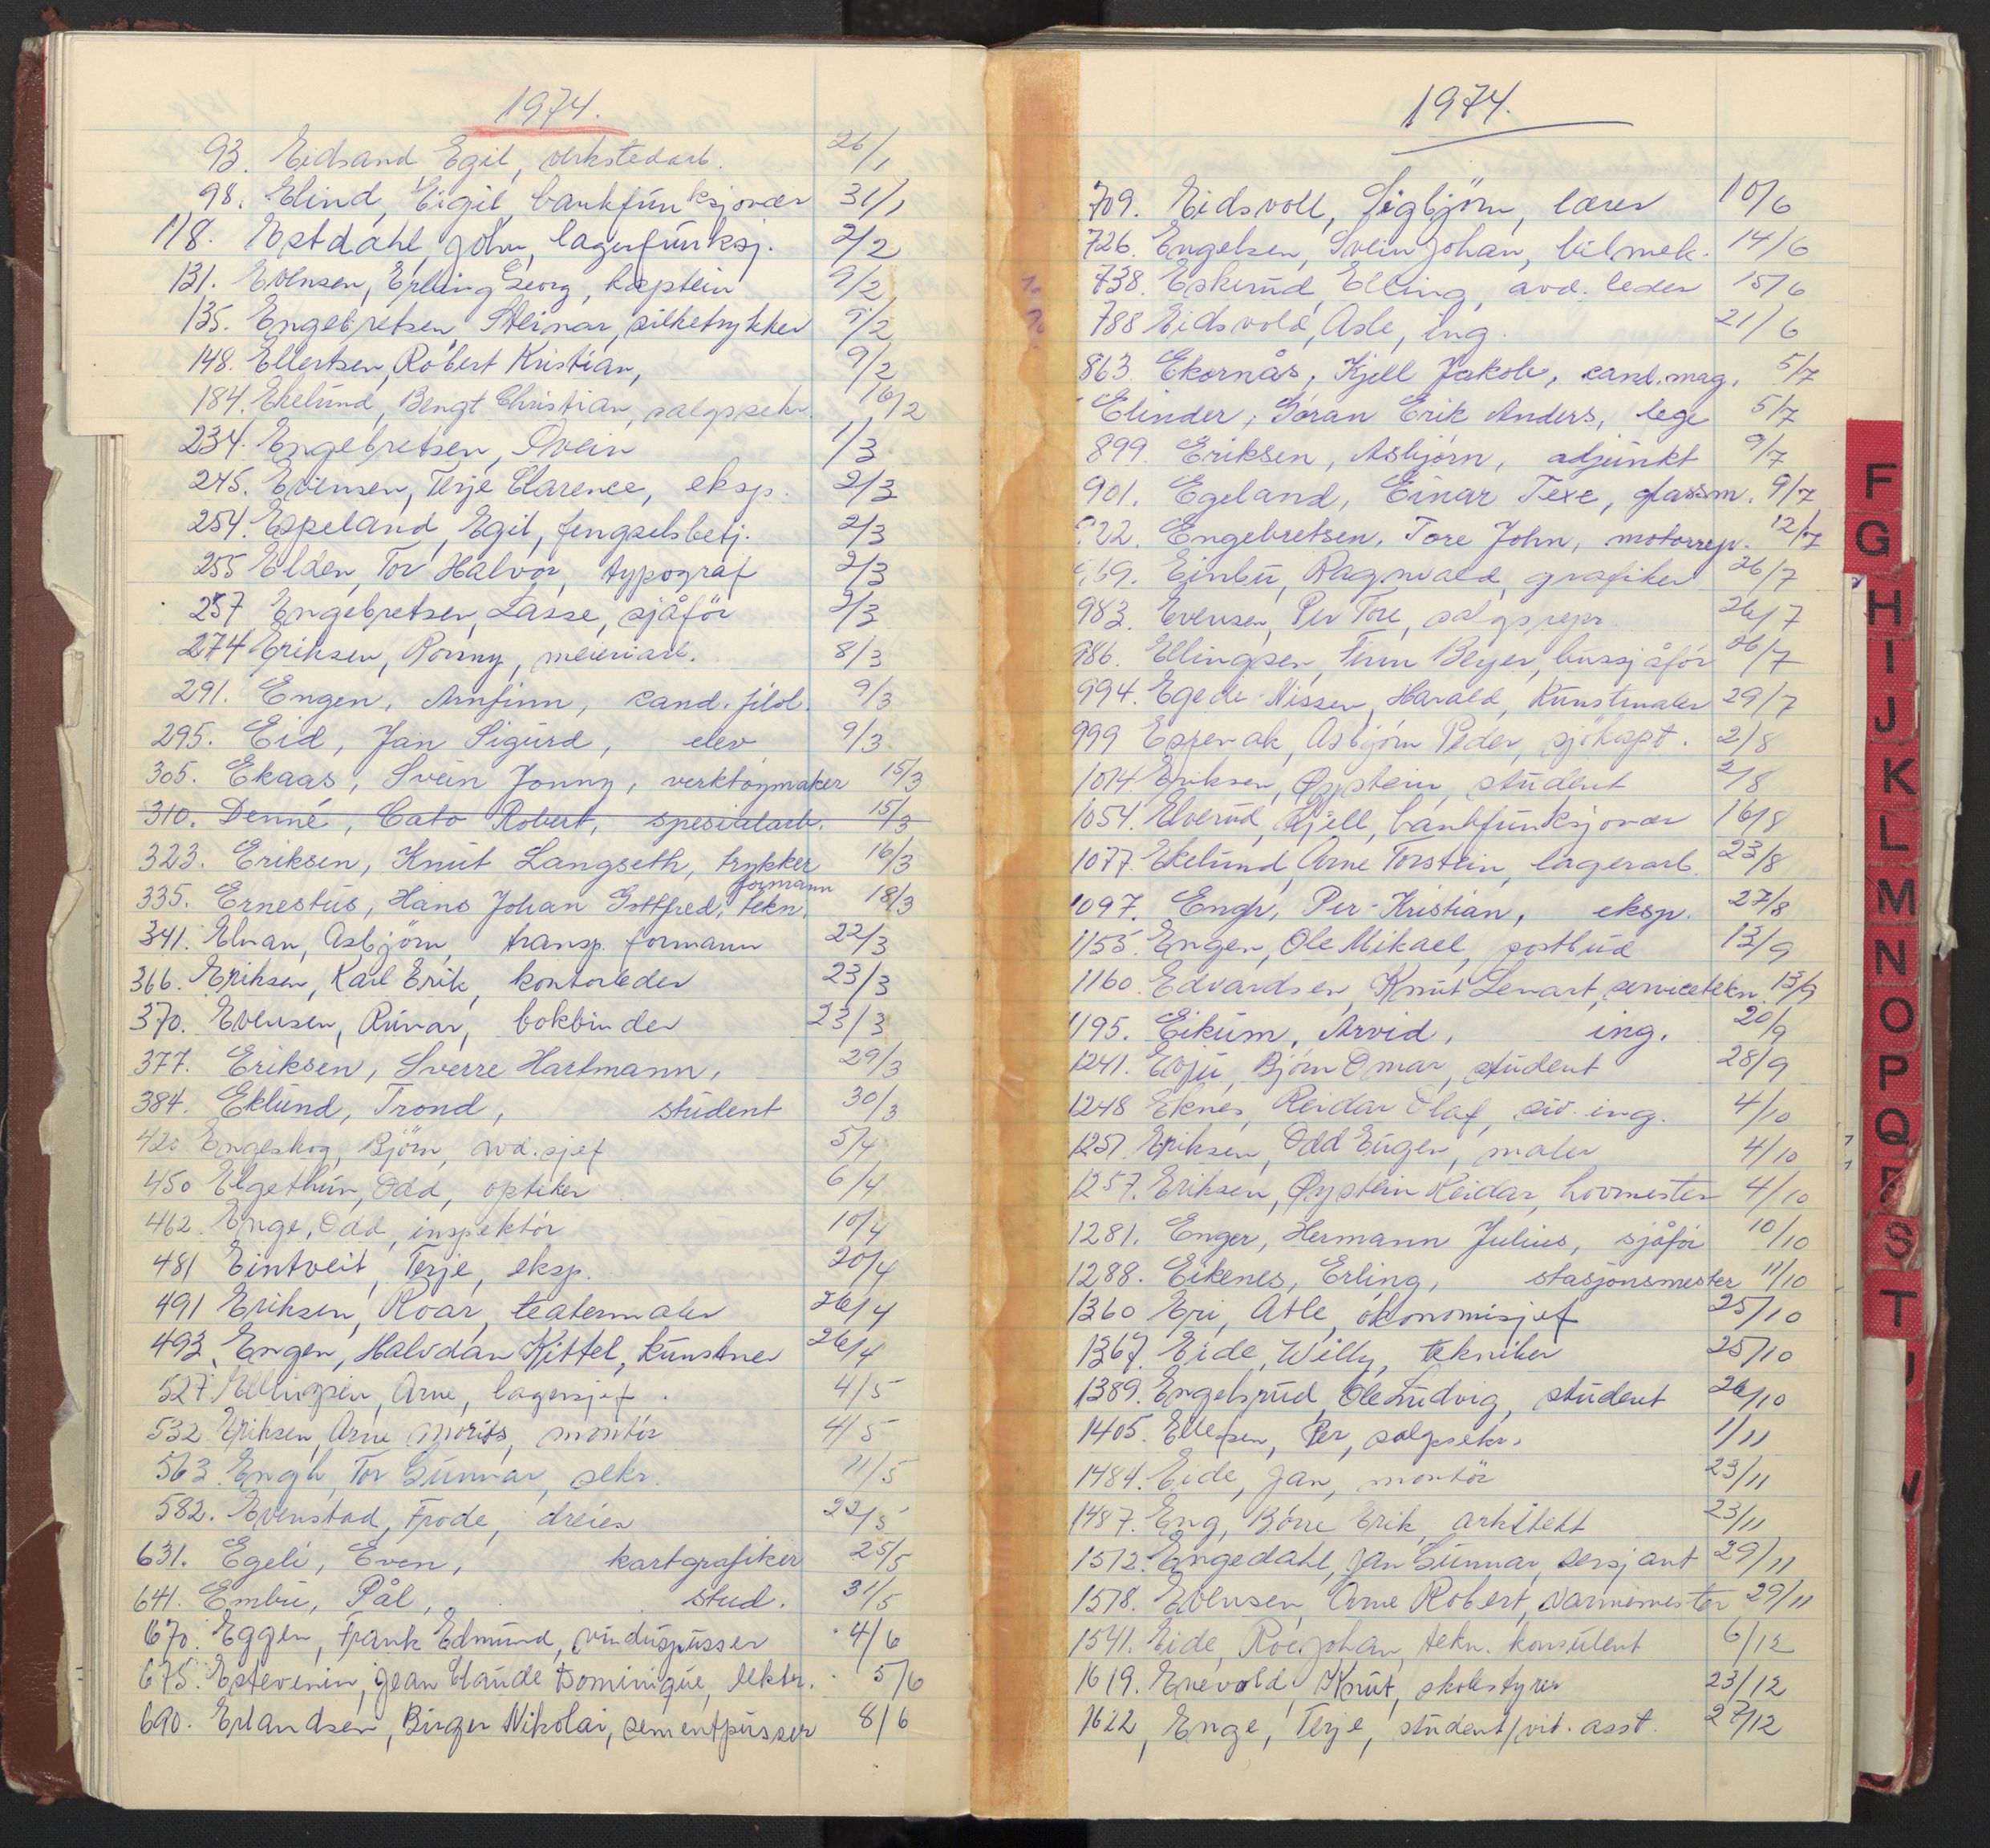 1974.
93. Eidsand Egil, verkstedarb. 26/1
98. Elind, Eigil bankfunksjonær 31/1
118. Estdahl, John, lagerfunksj. 2/2
131. Evensen, Erling Georg, kaptein 9/2
135. Engebretsen Steinar, silketrykker 9/2
148. Ellertsen, Robert Kristian, 9/2
184. Ekelund, Bengt Christian, salgssekr. 16/2
234. Engebretsen, Svein 1/3
245. Evensen, Terje Clarence, eksp. 2/3
254. Espeland, Egil, fengselsbetj. 2/3
255 Elden, Tor Halvor, typograf 2/3
257 Engebretsen, Lasse, sjåför 2/3
274 Eriksen, Ronny, meieriarb. 8/3
291. Engen, Arnfinn, cand. filol. 9/3
295. Eid, Jan Sigurd, elev 9/3
305. Ekaas, Svein Jonny, verktöymaker 15/3
310. Denné, Cato Robert, spesialarb. 15/3
323. Eriksen, Knut Langseth, trykker 16/3
formann
335. Ernestus, Hans Johan Gottfred, tekn. 18/3
341. Elvan, Asbjörn, transp. formann 22/3
366. Eriksen, Karl Erik, kontorleder 23/3
370. Evensen, Runar, bokbinder 23/3
377. Eriksen, Sverre Hartmann, 29/3
384. Eklund, Trond, student 30/3
420 Engeskog, Björn, avd. sjef 5/4
450 Elgethun, Odd, optiker 6/4
462. Enge, Odd, inspektör 10/4
481 Eintveit, Terje, eksp. 20/4
491 Eriksen, Roar, teatermaler 26/4
493, Engen, Halvdan Kittel, kunstner 26/4
527. Ellingsen, Arne, lagersjef. 4/5
532 Eriksen, Arne Morits, montör 4/5
563 Engh, Tor Gunnar, sekr. 11/5
582. Evenstad, Frode, dreier 22/5
631. Egeli, Even, kartgrafiker 25/5
641. Embu, Pål, stud. 31/5
670. Eggen, Frank Edmund, vinduspusser 4/6
675. Estevenin, Jean Claude Dominique, lektor. 5/6
690. Erlandsen, Birger Nikolai, sementpusser 8/6
1974.
709. Eidsvoll, Sigbjörn, lærer 10/6
726. Engelsen, Svein Johan, bilmek. 14/6
738. Eskerud, Elling, avd. leder 15/6
788 Eidsvold, Asle, ing. 21/6
863 Ekornås, Kjell Jakob, cand. mag. 5/7
Elinder, Göran Erik Anders, lege 5/7
899. Eriksen, Asbjörn, adjunkt 9/7
901. Egeland, Einar Texe, glassm. 9/7
22. Engebretsen, Tore John, motorrep. 12/7
69. Einbu, Ragnvald, grafiker 26/7
983. Evensen, Per Tore, salgsrepr. 26/7
986. Ellingsen, Finn Beyer, bussjåför 26/7
994. Egede-Nissen, Harald, Kunstmaler 29/7
999 Espevak, Asbjörn Peder, sjökapt. 2/8
1014 Eriksen, Øystein, student 2/8
1054. Elverud, Kjell, bankfunksjonær 16/8
1077. Ekelund, Arne Torstein, lagerarb. 23/8
1097. Engh, Per-Kristian, eksp. 27/8
1155. Engen, Ole Mikael, postbud 13/9
1160. Edvardsen, Knut Lenart, servicetekn. 13/9
1195. Eikum, Arvid, ing. 20/9
1241. Evju, Björn Omar, student 28/9
1248 Eknes, Reidar Olaf, siv. ing. 4/10
1251. Eriksen, Odd Eugen, maler 4/10
1257. Eriksen, Øystein Reidar, hovmester 4/10
1281. Enger, Hermann Julius, sjåför 10/10
1288. Eikenes, Erling, stasjonsmester 11/10
1360 Eri, Atle, ökonomisjef 25/10
1367. Eide, Willy, tekniker 25/10
1389. Engelsrud, Ole Ludvig, student 26/10
1405. Ellefsen, Per, salgssekr. 1/11
1484. Eide, Jan, montör 23/11
1487. Eng, Börre Erik, arkitekt 23/11
1512. Engedahl, Jan Gunnar, sersjant 29/11
1518. Evensen, Arne Robert, varmemester 29/11
1541. Eide, Roe Johan, tekn. konsulent 6/12
1619. Enevold, Knut, skolestyrer 23/12
1622, Enge, Terje, student/vit. asst. 27/12
F
G
H
I
J
K
L
M
N
O
P
Q
R
S
T